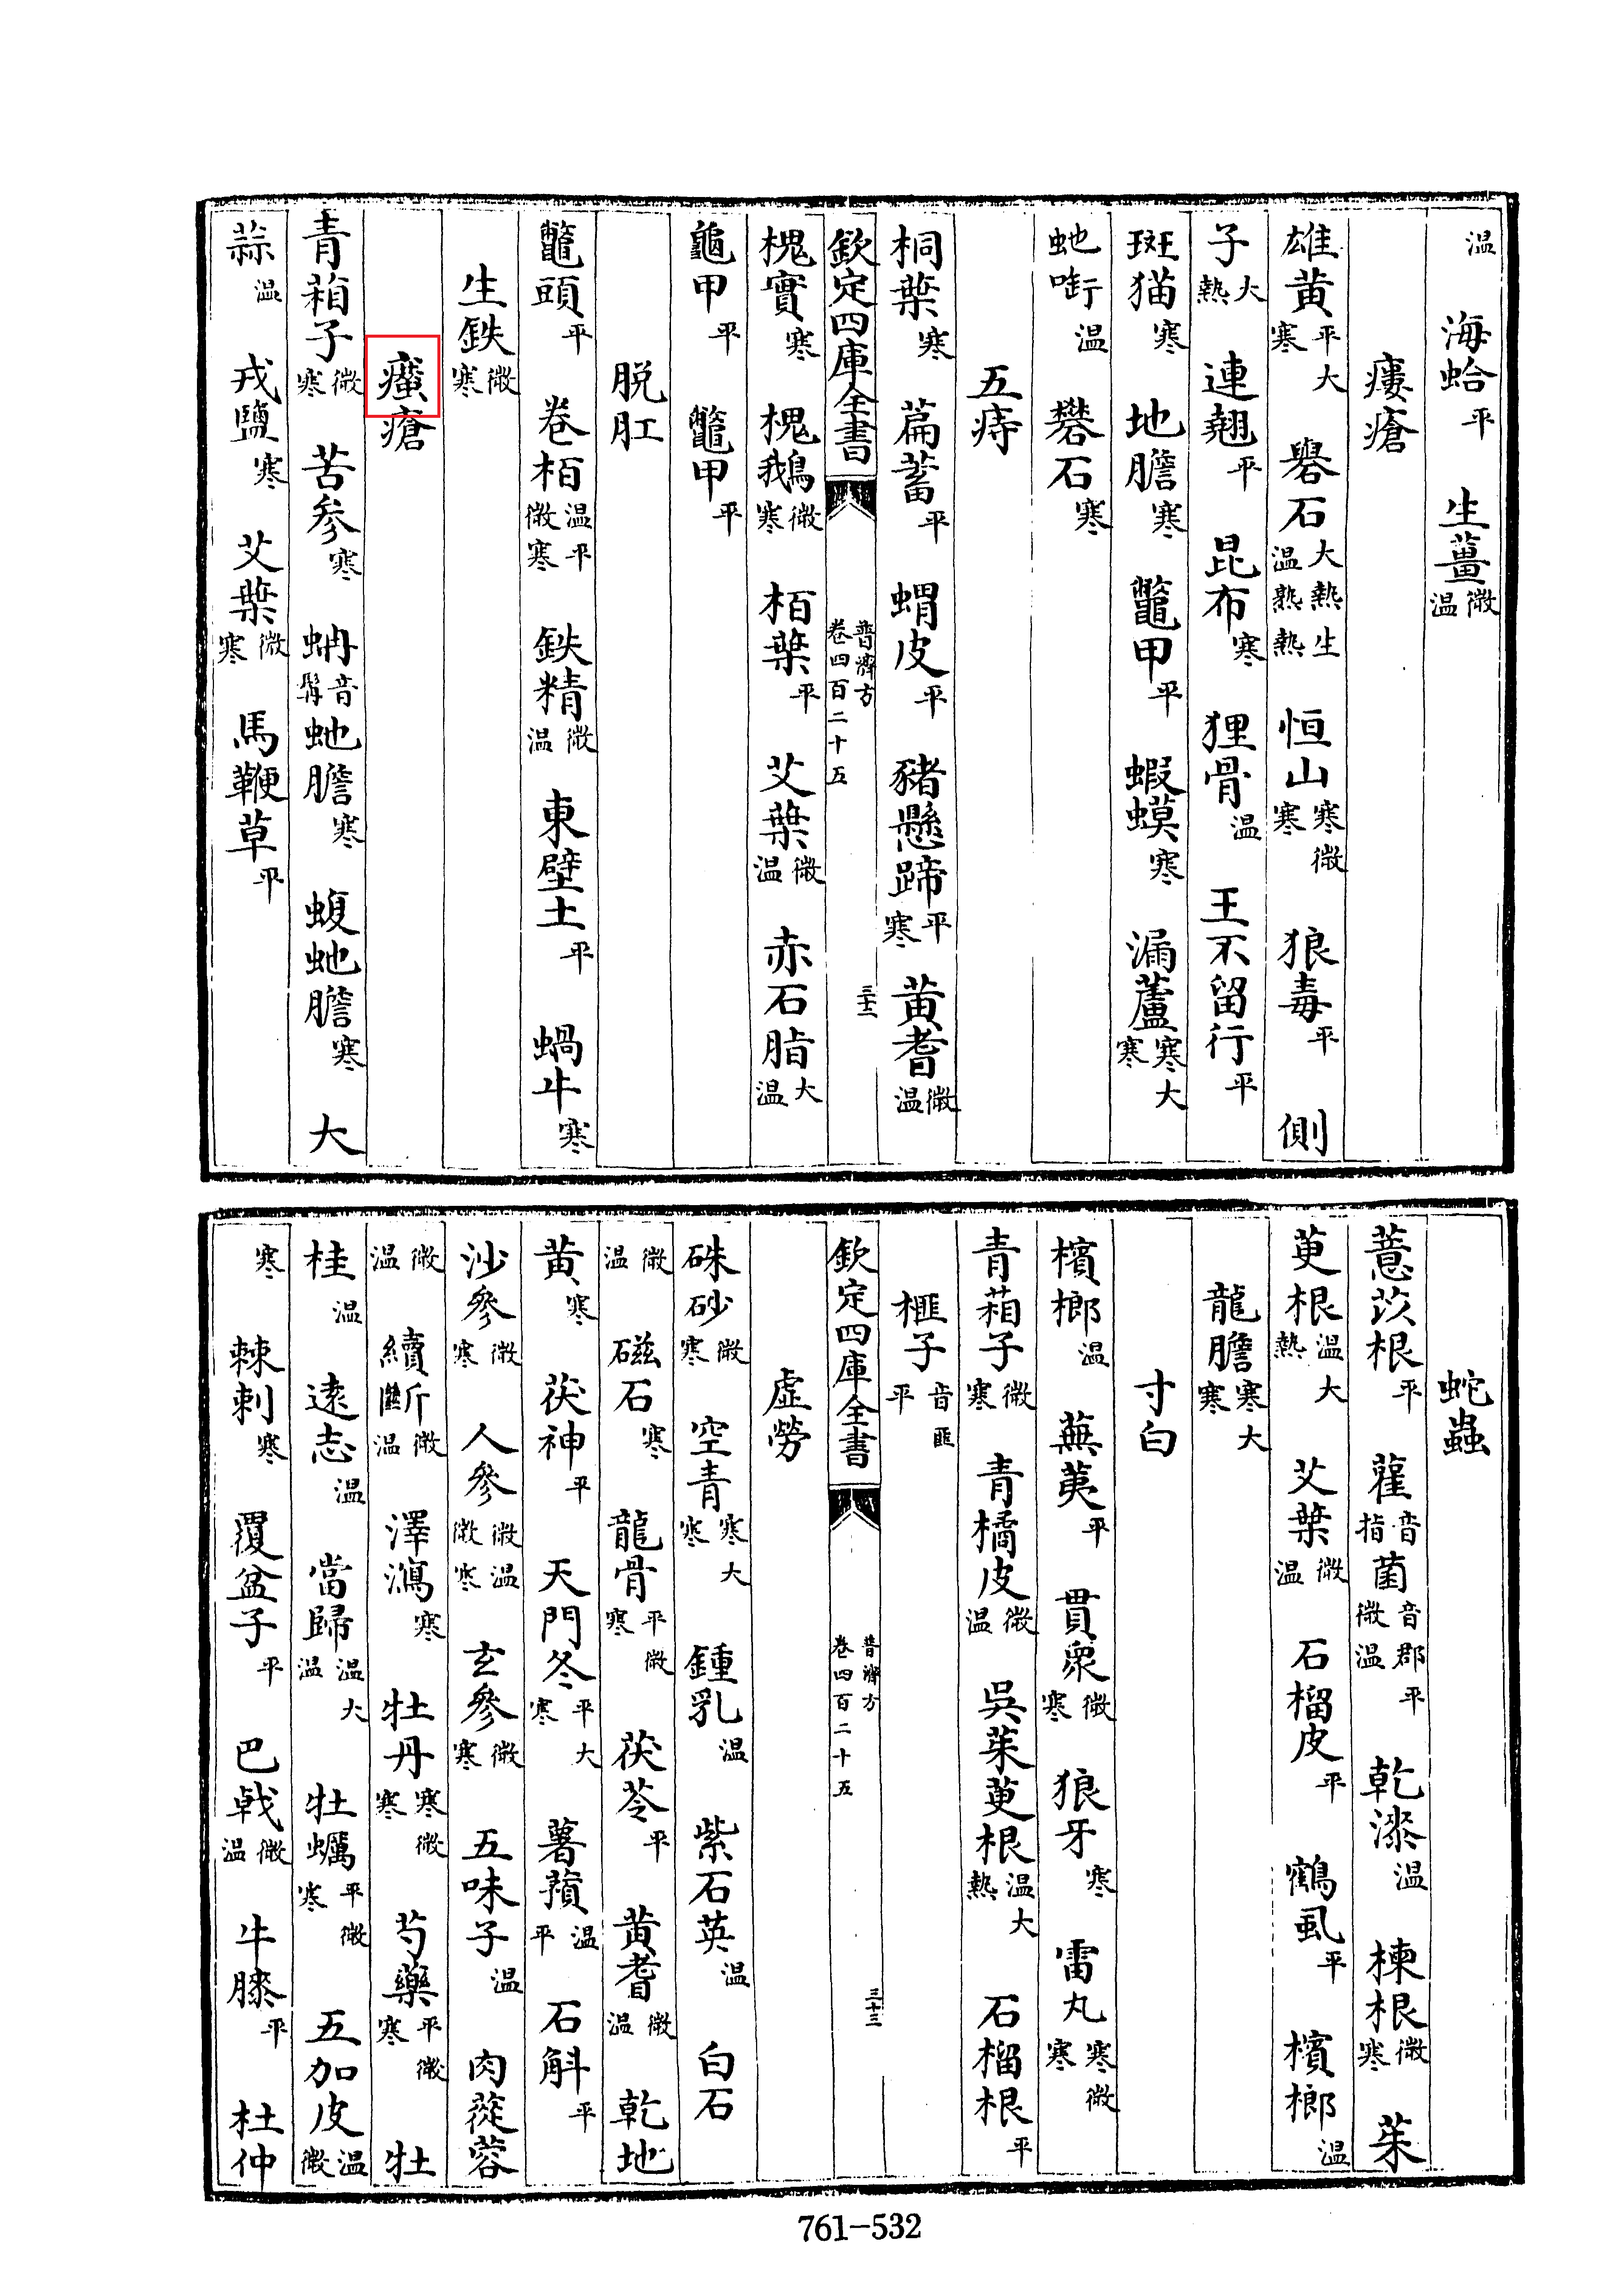 温　海蛤平　生薑微温
瘻瘡
雄黄平大寒　礜石大熱生温熱熱　恒山寒微寒　狼毒平　側
子大熱　連翹平　昆布寒　狸骨温　王不留行平
斑猫寒　地膽寒　鼈甲平　蝦蟆寒　漏蘆寒大寒
虵啣温　礬石寒
五痔
桐葉寒　萹蓄平　蝟皮平　豬懸蹄平寒　黄耆微温
欽定四庫全書　普濟方卷四百二十五　三十二
槐實寒　槐鵝微寒　栢葉平　艾葉微温　赤石脂大温
龜甲平　鼈甲平
脱肛
鼈頭平　卷栢温平微寒　鉄精微温　東壁土平　蝸牛寒
生鉄微寒
瘡
青葙子微寒　苦參寒　蚺音髯虵膽寒　蝮虵膽寒　大
蒜温　戎鹽寒　艾葉微寒　馬鞭草平
蛇蟲
薏苡根平　雚音指菌音郡平微温　乾漆温　楝根微寒　茱
萸根温大熱　艾葉微温　石榴皮平　鶴虱平　檳榔温
龍膽寒大寒
寸白
檳榔温　蕪荑平　貫衆微寒　狼牙寒　雷丸寒微寒
青葙子微寒　青橘皮微温　吳茱萸根温大熱　石榴根平
榧子音匪平
欽定四庫全書　普濟方卷四百二十五　三十三
虛勞
硃砂微寒　空青寒大寒　鍾乳温　紫石英温　白石
微温　磁石寒　龍骨平微寒　茯苓平　黄耆微温　乾地
黄寒　茯神平　天門冬平大寒　薯蕷温平　石斛平
沙參微寒　人參微温微寒　玄參微寒　五味子温　肉蓯蓉
微温　續斷微温　澤瀉寒　牡丹寒微寒　芍藥平微寒　牡
桂温　遠志温　當歸温大温　牡蠣平微寒　五加皮温微
寒　棘刺寒　覆盆子平　巴戟微温　牛膝平　杜仲
761-532